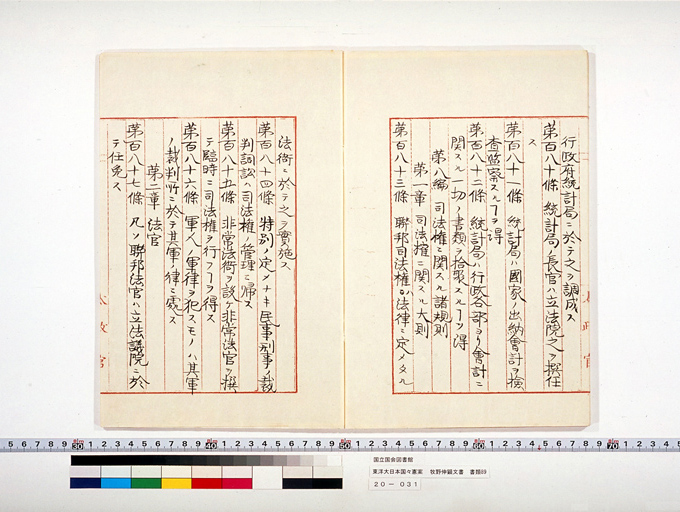 行政府統計局ニ於テ之ヲ調成ス
第百八十條 統計局ノ長官ハ立法院之ヲ撰任
ス
第百八十一條 統計局ハ國家ノ出納會計ヲ撿
査監察スルヿヲ得
第百八十二條 統計局ハ行政各部ヨリ會計ニ
関スル一切ノ書類ヲ拾聚スルヿヲ得
第八編 司法權ニ関スル諸規則
第一章 司法權ニ関スル大則
第百八十三條 聯邦司法權ハ法律ニ定メタル
太政官
法衙ニ於テ之ヲ實施ス
第百八十四條 特別ノ定メナキ民事刑事ノ裁
判詞訟ハ司法權ノ管理ニ帰ス
第百八十五條 非常法衙ヲ設ケ非常法官ヲ撰
テ臨時ニ司法權ヲ行フヿヲ得ス
第百八十六條 軍人ノ軍律ヲ犯スモノハ其軍
ノ裁判所ニ於テ其軍律ニ處ス
第二章 法官
第百八十七條 凡ソ聯邦法官ハ立法議院ニ於
テ任免ス
太政官
国立国会図書館
東洋大日本国々憲案 牧野伸顕文書 書類69
20－031